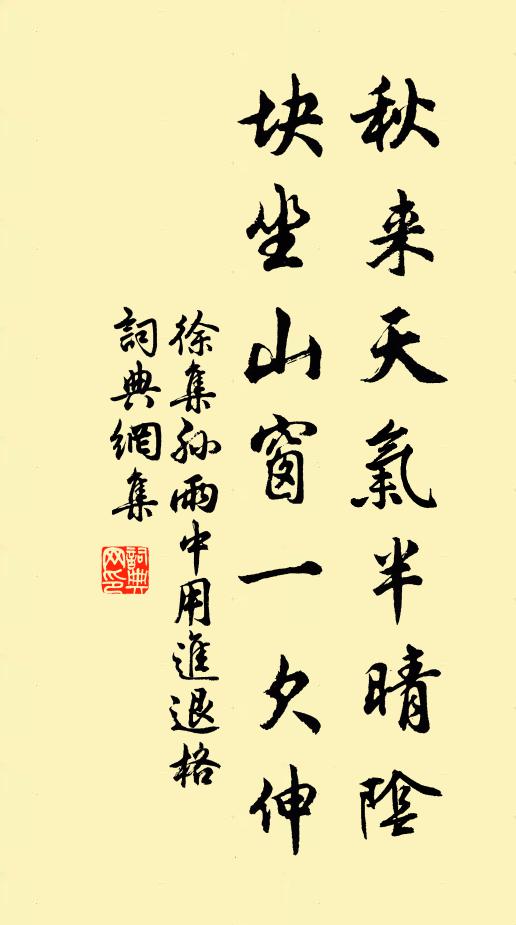 秋来天氣半晴陰
块坐山窗一欠伸
徐集孙雨中用進退格
詞典網集
詞典网印